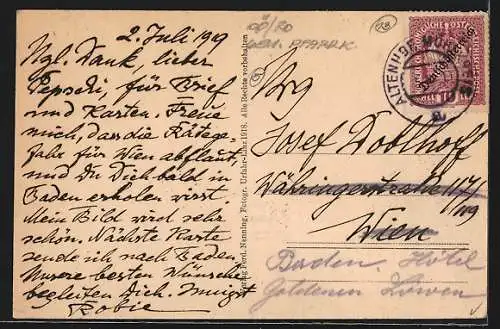 2. Juli 1919
Vgl. Dank lieber
Pepschi, für Brief
und Karten. Freue
mich, dass die Rätege-
fahr für Wien abflaut,
und Du Dich bald in
Baden erholen wirst.
Mein Bild wird sehr
schön. Nächste Karte
sende ich nach Baden.
Unsere besten Wünsche
begleiten Dich. Innigst
Verlag Ferd. Nenning, Fotogr. Urfahr-Linz 1918. Alle Rechte vorbehalten
OÖ/RO
GEM. PFARRK.
ALTENHOF
Deutschösterreich
Josef Dobthoff
Währingerstraße
Wien
Baden, Hôtel
Goldenen Löwen